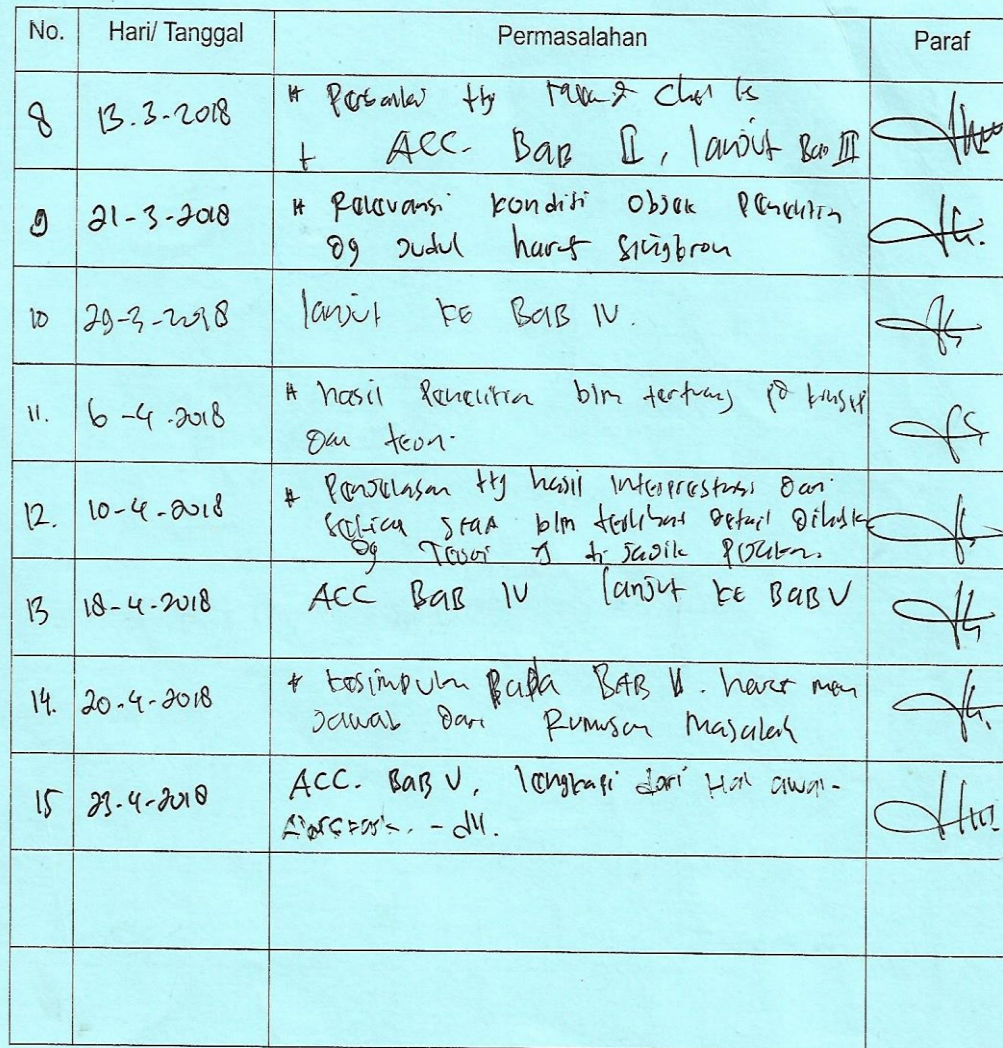 No. Hari/ Tanggal Permasalahan Paraf
8 13.3-2018 # Perbaiki ttg
+ ACC. BAB II, lanjut Bab III
9 21-3-2018 # Relevansi kondisi objek Penelitian
dg judul harus singkron
10 29-3-2018 lanjut KE BAB IV.
11. 6-4-2018 # hasil Penelitian blm tertuang pd
dan teori.
12. 10-4-2018 # Penjelasan ttg hasil interprestasi dari
blm terlihat detail
dg Teori yg di
13 18-4-2018 ACC BAB IV lanjut KE BAB V
14. 20-4-2018 # kesimpulan Pada BAB V. harus men
jawab dari Rumusan Masalah
15 23-4-2018 ACC. BAB V, lengkapi dari Hal awal-
Abstrak. - dll.